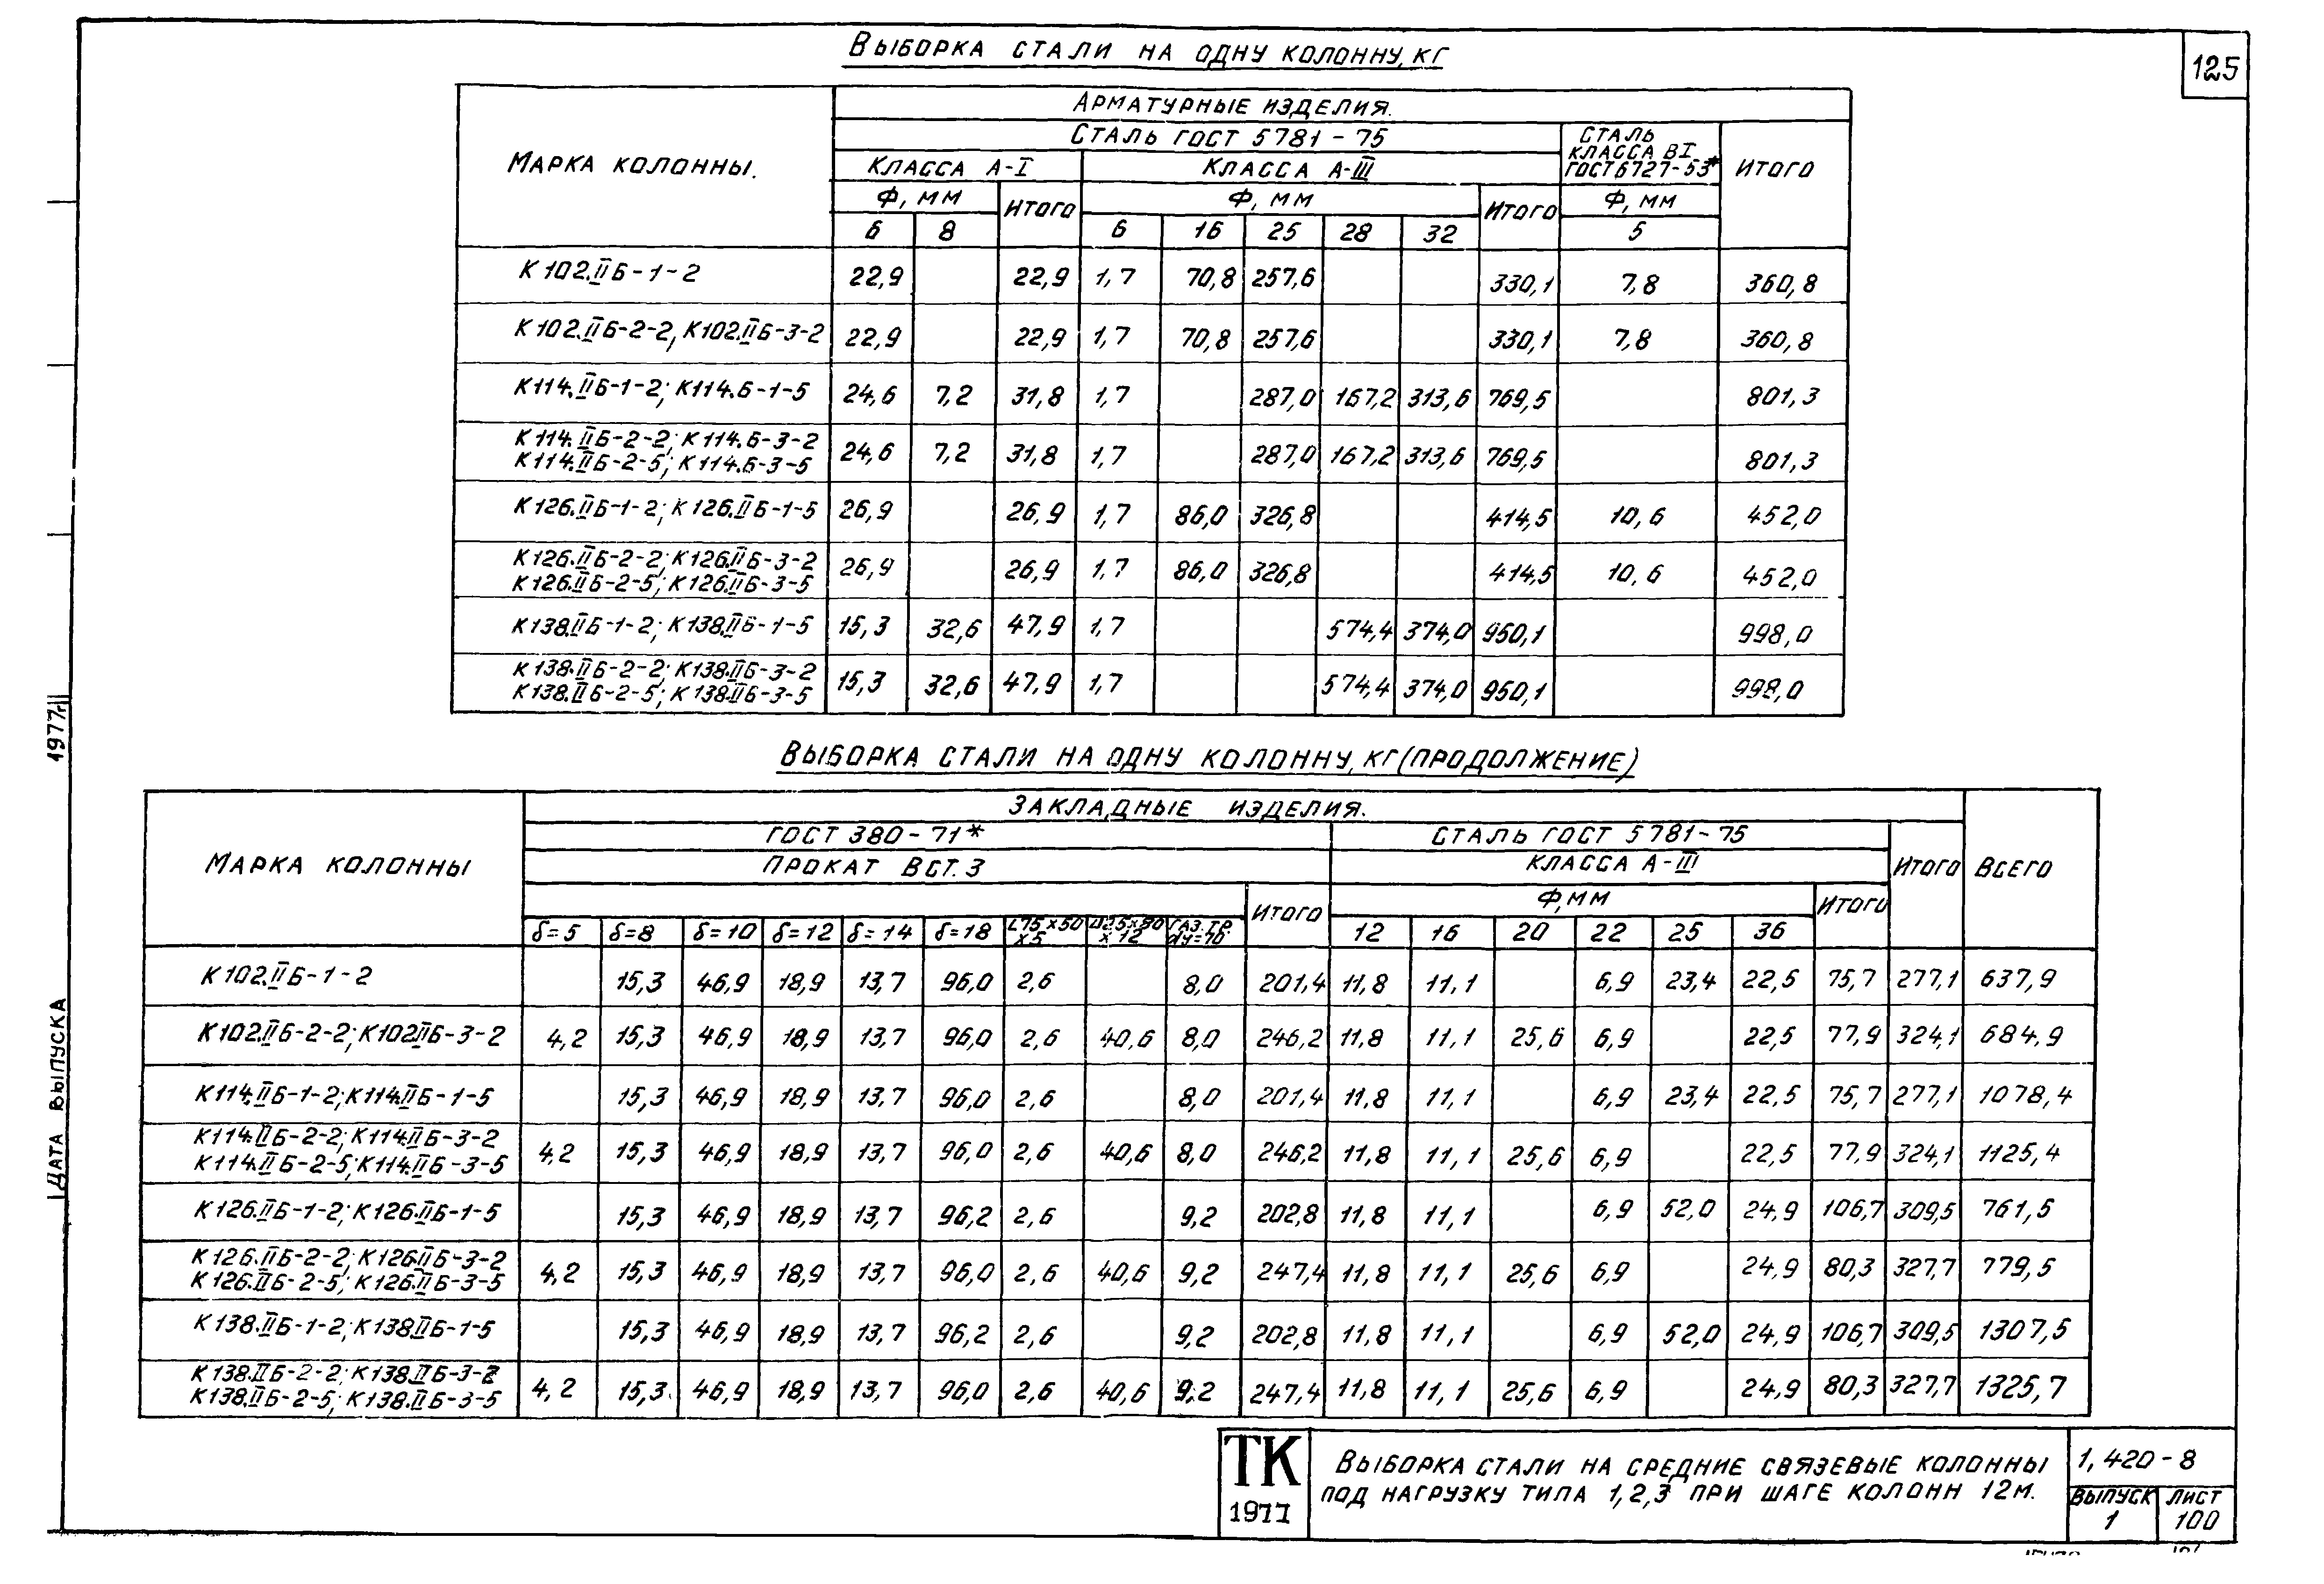 125
Выборка стали на одну колонну, кг
Марка колонны.
Арматурные изделия.
Сталь ГОСТ 5781-75
Сталь класса ВI ГОСТ 6727-53*
Итого
Класса А-I
Класса А-III
Ф, мм
Итого
Ф, мм
Итого
Ф, мм
6 8 6 16 25 28 32 5
К102.IIБ-1-2 22,9 22,9 1,7 70,8 257,6 330,1 7,8 360,8
К102.IIБ-2-2, К102.IIБ-3-2 22,9 22,9 1,7 70,8 257,6 330,1 7,8 360,8
К114.IIБ-1-2; К114.Б-1-5 24,6 7,2 31,8 1,7 287,0 167,2 313,6 769,5 801,3
К114.IIБ-2-2; К114.Б-3-2
К114.IIБ-2-5; К114.Б-3-5 24,6 7,2 31,8 1,7 287,0 167,2 313,6 769,5 801,3
К126.IIБ-1-2; К126.IIБ-1-5 26,9 26,9 1,7 86,0 326,8 414,5 10,6 452,0
К126.IIБ-2-2; К126.IIБ-3-2
К126.IIБ-2-5; К126.IIБ-3-5 26,9 26,9 1,7 86,0 326,8 414,5 10,6 452,0
К138.IIБ-1-2; К138.IIБ-1-5 15,3 32,6 47,9 1,7 574,4 374,0 950,1 998,0
К138.IIБ-2-2; К138.IIБ-3-2
К138.IIБ-2-5; К138.IIБ-3-5 15,3 32,6 47,9 1,7 574,4 374,0 950,1 998,0
Выборка стали на одну колонну, кг (продолжение)
Марка колонны
Закладные изделия.
Всего
ГОСТ 380-71*
Сталь ГОСТ 5781-75
Итого
Прокат ВСт.3
Класса А-III
Итого
Ф, мм
Итого
δ=5 δ=8 δ=10 δ=12 δ=14 δ=18 L75×50×5 ×12 Газ.тр dу=70 12 16 20 22 25 36
К102.IIБ-1-2 15,3 46,9 18,9 13,7 96,0 2,6 8,0 201,4 11,8 11,1 6,9 23,4 22,5 75,7 277,1 637,9
К102.IIБ-2-2; К102IIБ-3-2 4,2 15,3 46,9 18,9 13,7 96,0 2,6 40,6 8,0 246,2 11,8 11,1 25,6 6,9 22,5 77,9 324,1 684,9
К114.IIБ-1-2; К114.IIБ-1-5 15,3 46,9 18,9 13,7 96,0 2,6 8,0 201,4 11,8 11,1 6,9 23,4 22,5 75,7 277,1 1078,4
К114.IIБ-2-2; К114.IIБ-3-2
К114.IIБ-2-5; К114.IIБ-3-5 4,2 15,3 46,9 18,9 13,7 96,0 2,6 40,6 8,0 246,2 11,8 11,1 25,6 6,9 22,5 77,9 324,1 1125,4
К126.IIБ-1-2; К126.IIБ-1-5 15,3 46,9 18,9 13,7 96,2 2,6 9,2 202,8 11,8 11,1 6,9 52,0 24,9 106,7 309,5 761,5
К126.IIБ-2-2; К126IIБ-3-2
К126.IIБ-2-5; К126.IIБ-3-5 4,2 15,3 46,9 18,9 13,7 96,0 2,6 40,6 9,2 247,4 11,8 11,1 25,6 6,9 24,9 80,3 327,7 779,5
К138.IIБ-1-2; К138IIБ-1-5 15,3 46,9 18,9 13,7 96,2 2,6 9,2 202,8 11,8 11,1 6,9 52,0 24,9 106,7 309,5 1307,5
К138.IIБ-2-2; К138.IIБ-3-2
К138.IIБ-2-5; К138.IIБ-3-5 4,2 15,3 46,9 18,9 13,7 96,0 2,6 40,6 9,2 247,4 11,8 11,1 25,6 6,9 24,9 80,3 327,7 1325,7
1977г.
Дата выпуска
ТК
1977
Выборка стали на средние связевые колонны
под нагрузку типа 1,2,3 при шаге колонн 12м.
1,420-8
Выпуск
1
Лист
100